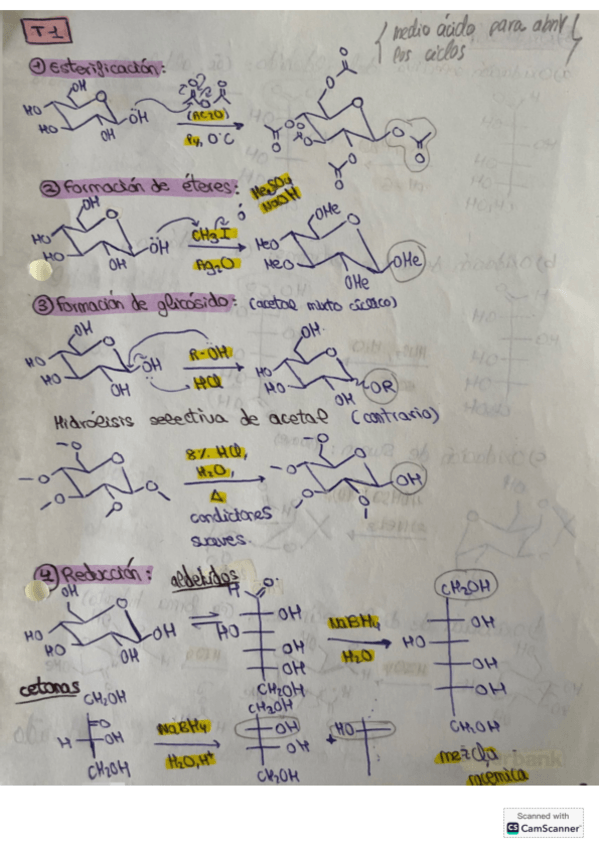 T1
{ medio ácido para abrir
los ciclos }
① Esterificación:
OH
HO
HO
OH
ÖH
(AC2O)
Py, 0°C
② Formación de éteres:
Me2SO4
NaOH
OH
HO
HO
OH
ÖH
CH3I
Ag2O
OMe
MeO
MeO
OMe
OMe
③ Formación de glicósido: (acetal mixto cíclico)
OH
HO
HO
OH
ÖH
R-OH
HCl
OH
HO
HO
OH
OR
Hidrólisis selectiva de acetal (contrario)
8% HCl,
H2O,
Δ
condiciones
suaves.
OH
4) Reducción:
aldehidos
OH
HO
HO
OH
OH
H
O
OH
HO
OH
OH
CH2OH
NaBH4
H2O
CH2OH
OH
HO
OH
OH
CH2OH
cetonas
CH2OH
O
H
OH
CH2OH
NaBH4
H2O, H+
CH2OH
OH
OH
CH2OH
+
HO
mezcla
racémica
Scanned with
CS CamScanner